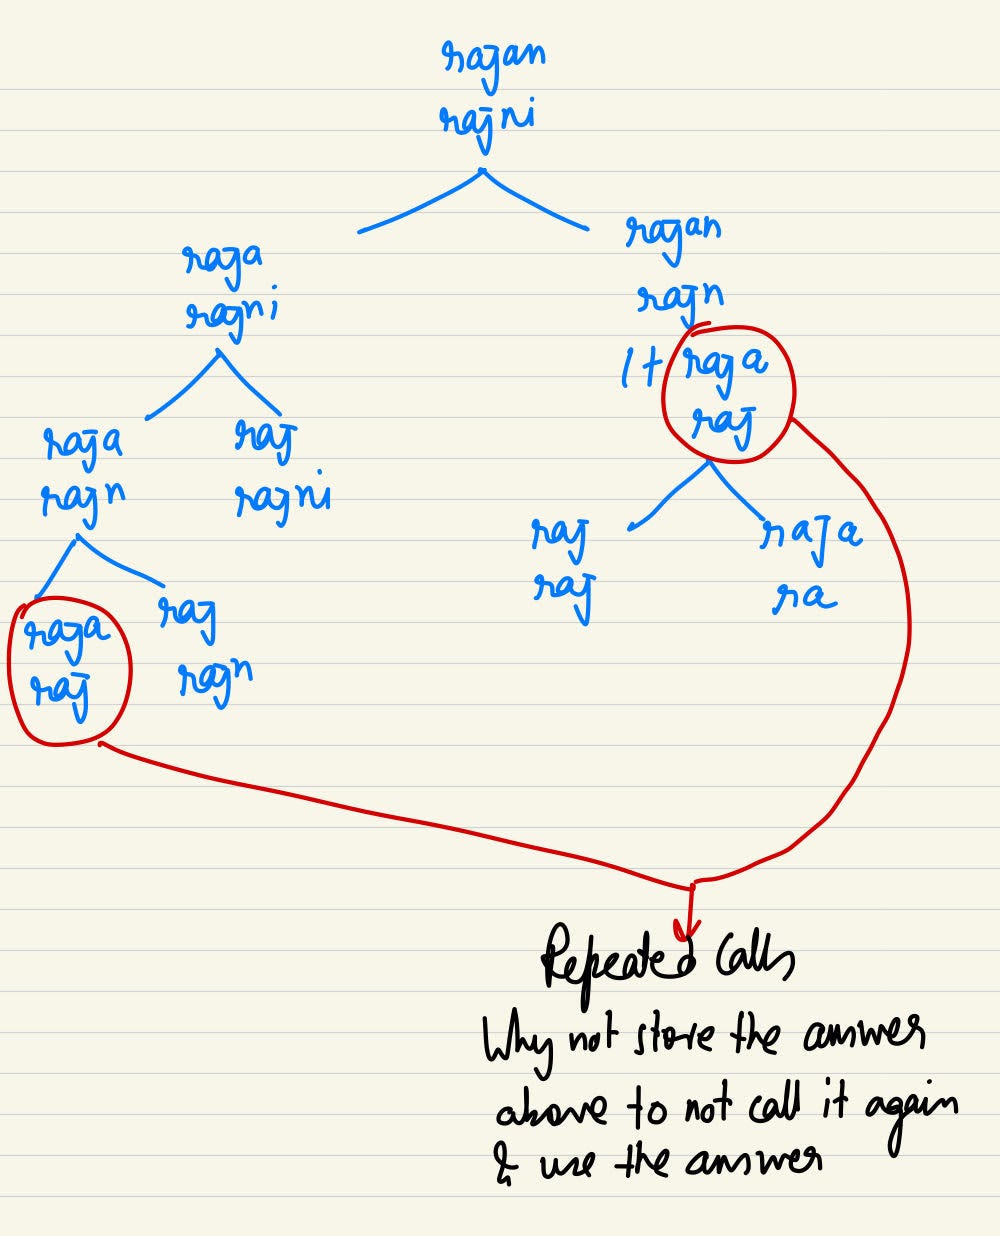 rajan
rajni
raja
rajni
rajan
rajn
1+ raja
raj
raja
rajn
raj
rajni
raj
raj
raja
ra
raja
raj
raj
rajn
Repeated Calls
Why not store the answer
above to not call it again
& use the answer